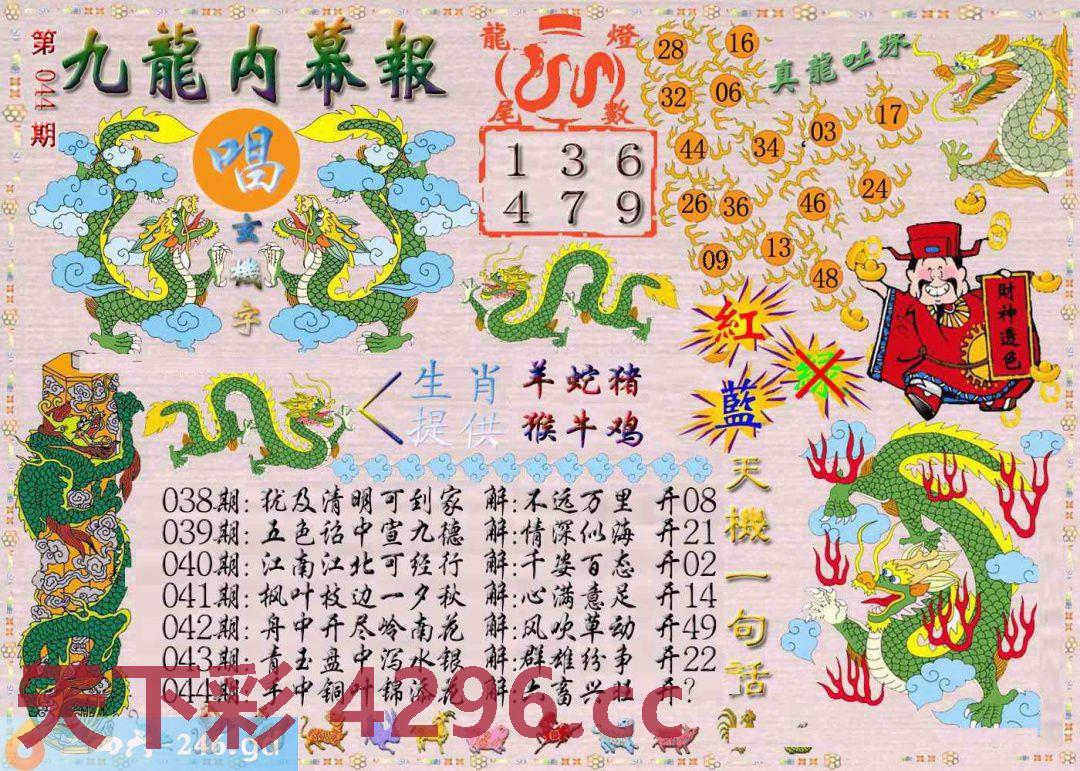 第044期
九龍内幕報
唱
玄機字
龍燈
尾數
1 3 6
4 7 9
真龍吐珠
28 16
32 06
44 34 03 17
26 36 46 24
09 13 48
紅
藍
绿
財神透色
生肖 羊蛇猪
提供 猴牛鸡
天機一句話
038期: 犹及清明可到家 解:不远万里 开08
039期: 五色诏中宣九德 解:情深似海 开21
040期: 江南江北可经行 解:千姿百态 开02
041期: 枫叶枝边一夕秋 解:心满意足 开14
042期: 舟中开尽岭南花 解:风吹草动 开49
043期: 青玉盘中泻水银 解:群雄纷争 开22
044期: 手中铜叶锦添花 解:六畜兴旺 开?
天下彩 4296.cc
=246.gd